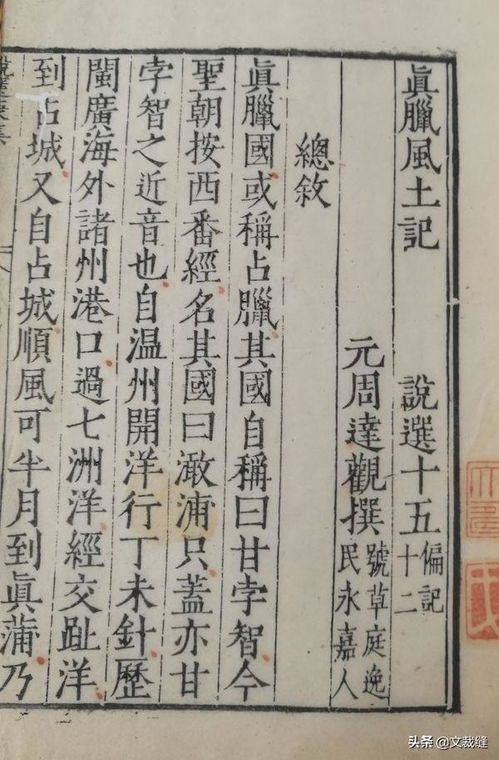 眞臘風土記 說選十五 偏記十二
元周達觀撰 號草庭逸民永嘉人
總敘
眞臘國或稱占臘其國自稱曰甘孛智今
聖朝按西番經名其國曰澉浦只蓋亦甘
孛智之近音也自温州開洋行丁未針歷
閩廣海外諸州港口過七洲洋經交趾洋
到占城又自占城順風可半月到眞蒲乃
头条 @文裁缝